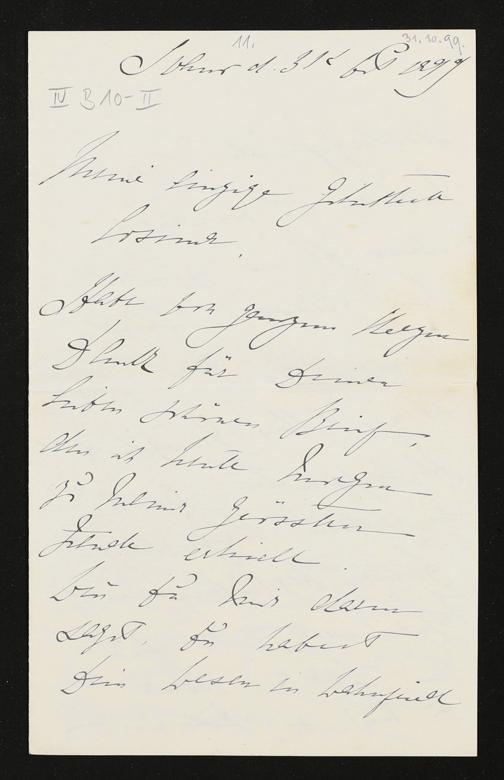 11.
31.10.99.
d. 31t Oct 1899
IV B 10-II
Meine einzige Geliebteste
Cosima.
Habe von ganzem Herzen
Dank für Deinen
lieben schönen Brief,
den ich heute Morgen
zu meiner grössten
Freude erhielt.
Wie Du mir darin
sagst, Du habest
Dein Wesen in Wahnfried